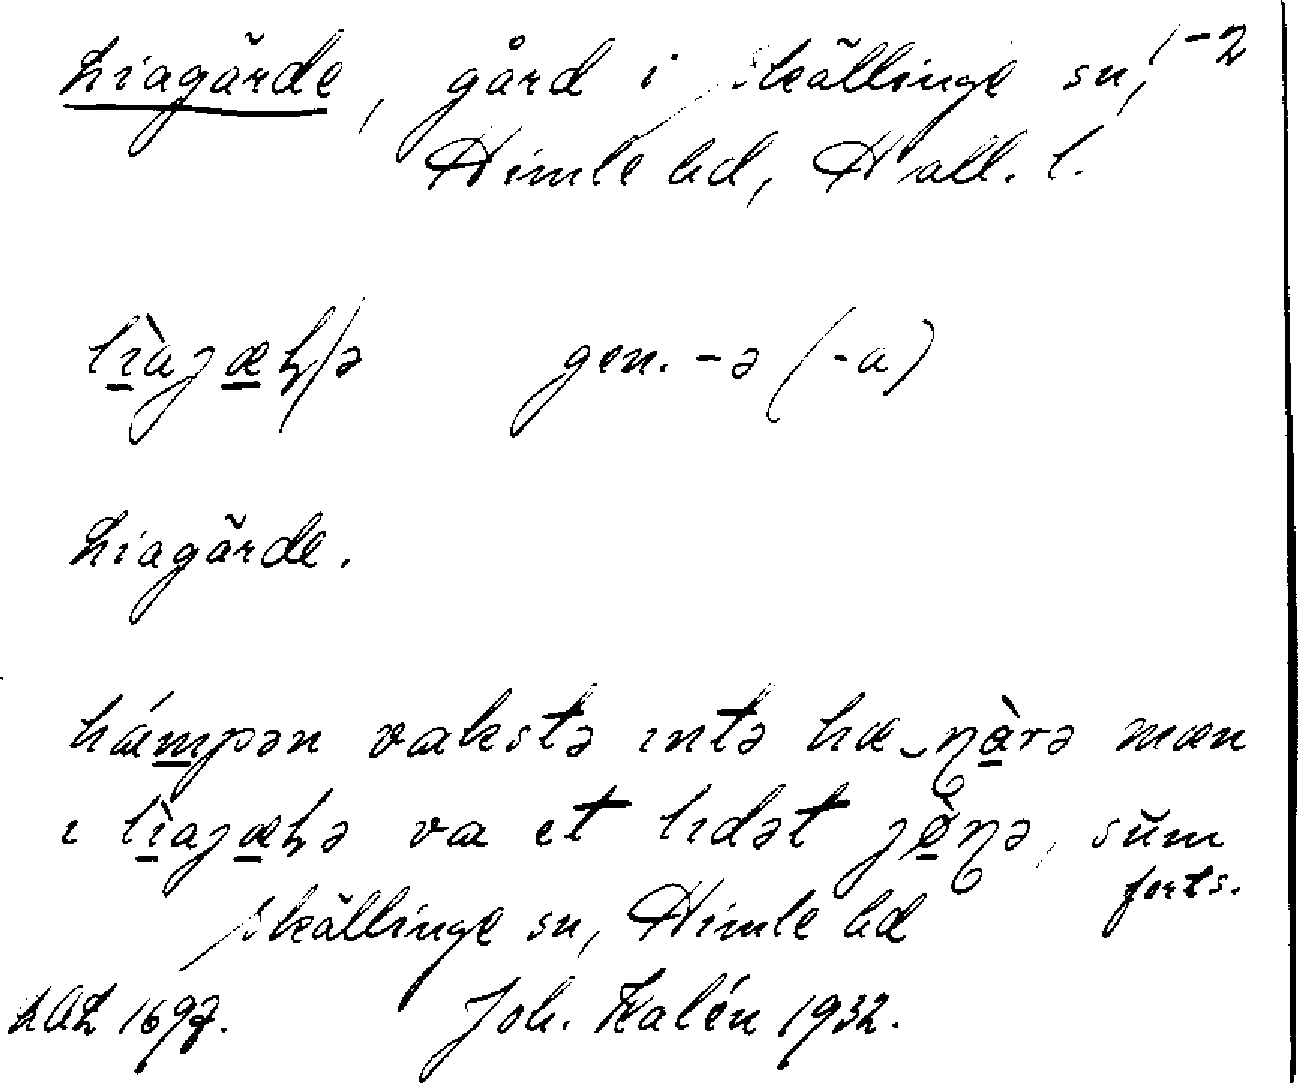 Liagärde, gård i Skällinge sn, 1-2
Himle hd, Hall. l.
lìaȷæꞕ/ə gen. -ə (-a)
Liagärde.
hámpən vækstə ıntə hæ‿ŋàrə mæn
ı lìaȷæꞕə va et lıdət ȷø̀ŋə, sũm
forts.
Skällinge sn, Himle hd
LAL 1697. Joh. Kalén 1932.